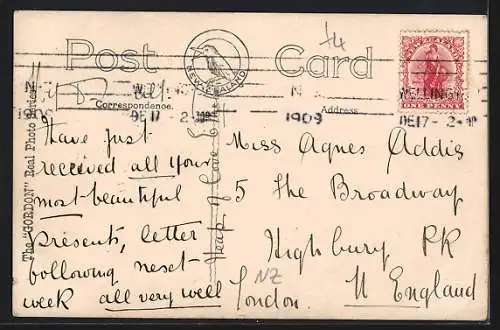 Post Card
NEW ZEALAND
1/4
Correspondence.
Address
N WELLINGTON
1909 DE17 2-
N
1909
WELLINGT
DE17-2-
NEW ZEALAND
ONE PENNY
The "GORDON" Real Photo Review
Have just
received all your
most beautiful
presents, letter
following next
week all very well
Heap of love
Miss Agnes Addis
5 The Broadway
Highbury PK
London. N England
NZ